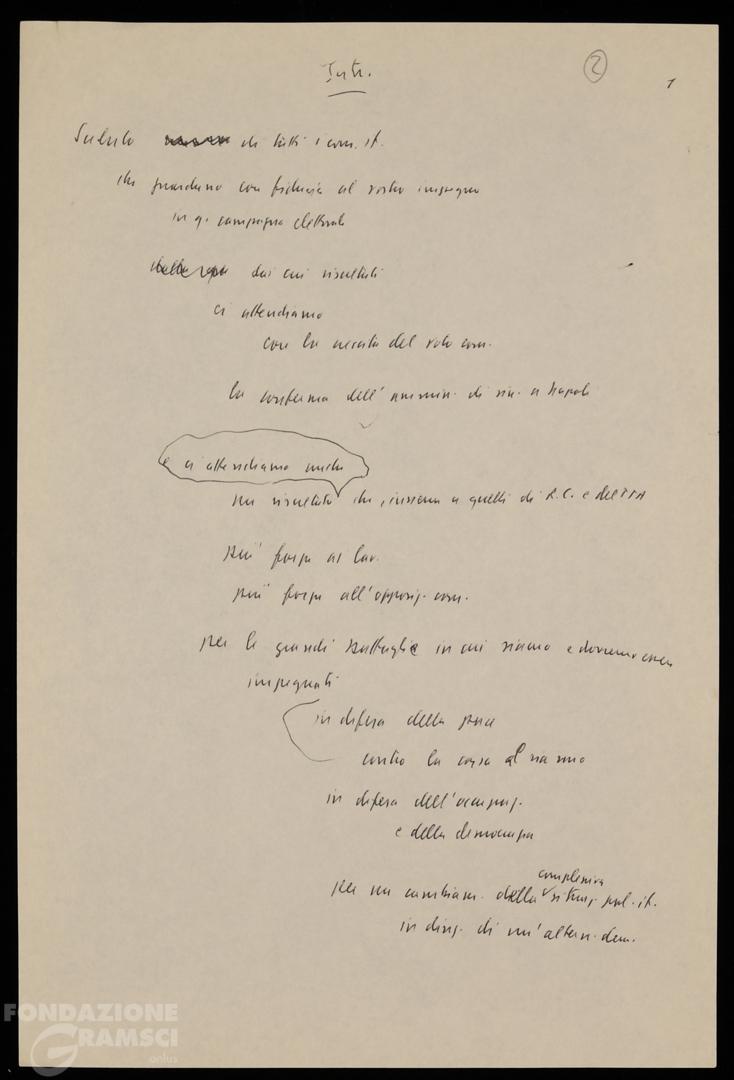 Intr.
2
1
Saluto di tutti i com. it.
che guardano con fiducia al vostro impegno
in q. campagna elettorale
dai cui risultati
ci attendiamo
con la avanzata del voto com.
la conferma dell'ammin. di sin. a Napoli
e ci attendiamo anche
un risultato che, insieme a quelli di R.C. e del
più forza ai lav.
più forza all'opposiz. com.
per le grandi battaglie in cui siamo e dovremo essere
impegnati
in difesa della pace
contro la corsa al riarmo
in difesa dell'occupaz.
e della democrazia
per un cambiam. della complessiva situaz. pol. it.
in direz. di un'altern. dem.
FONDAZIONE
GRAMSCI
onlus